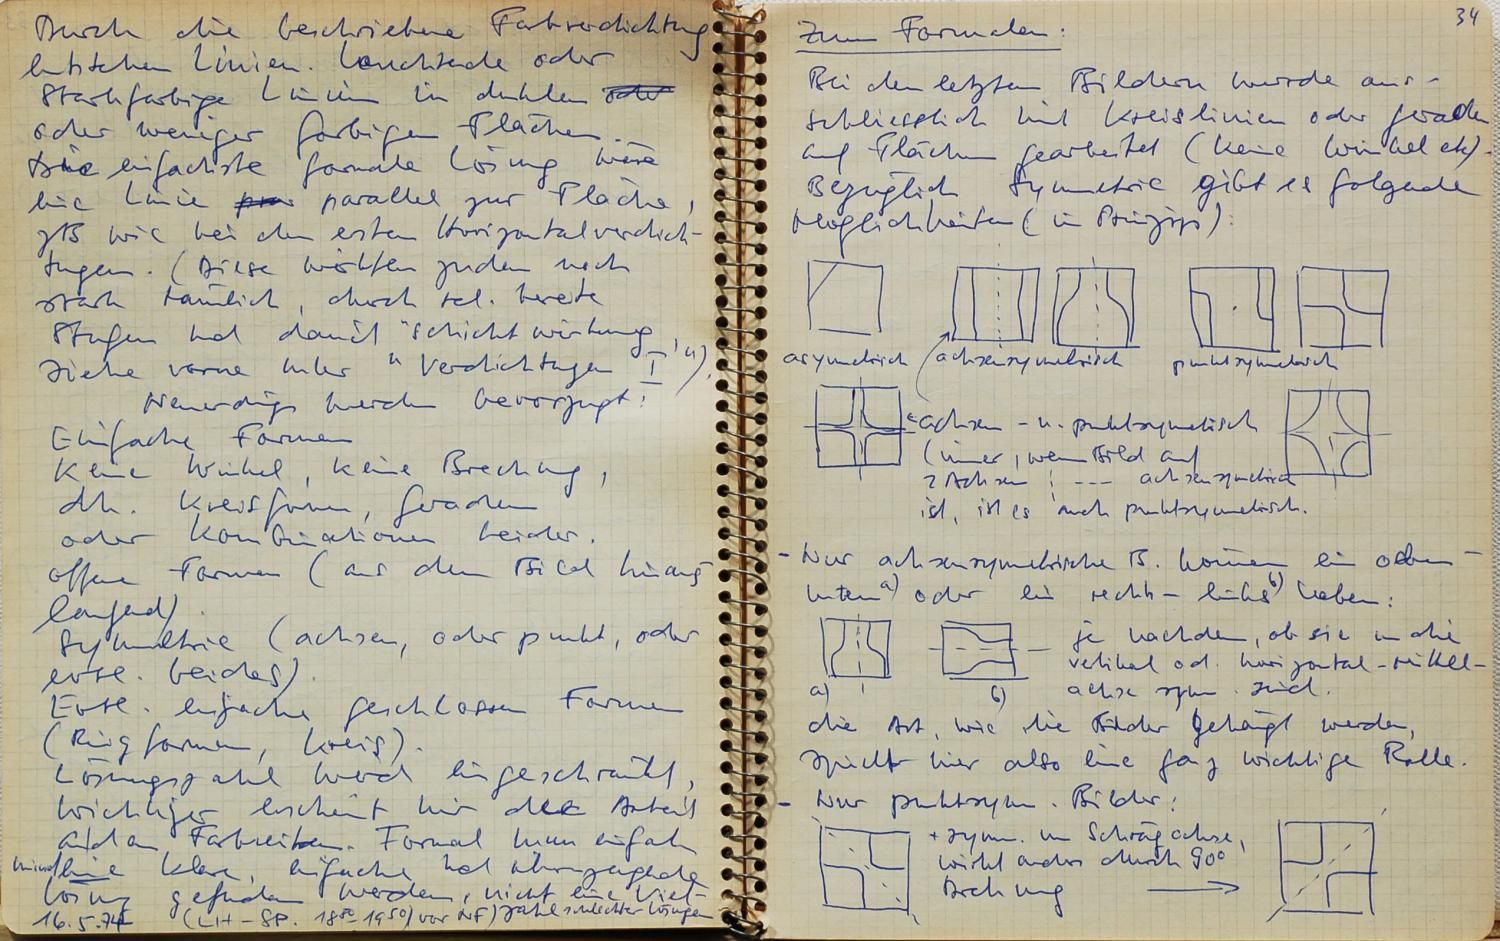 Durch die beschriebene Farbverdichtung
entstehen Linien. Leuchtende oder
starkfarbige Linien in dunklen oder
oder weniger farbigen Flächen.
Die einfachste formale Lösung wäre
eine Linie parallel zur Fläche,
zB wie bei den ersten Horizontalverdich-
tungen. (Diese wirkten zudem noch
stark räumlich, durch rel. breite
Stufen und damit "Schichtwirkung",
siehe vorne unter "Verdichtungen I").
Neuerdings werden bevorzugt:
Einfache Formen
Keine Winkel, keine Brechung,
dh. Kreisformen, Geraden
oder Kombinationen beider.
offene Formen (aus dem Bild hinaus
laufend).
Symmetrie (achsen, oder punkt, oder
evtl. beides).
Evtl. einfache geschlossene Formen
(Ringformen, Kreis).
Lösungszahl wird eingeschränkt,
wichtiger erscheint mir die Arbeit
an den Farbreihen. Formal muss einfach
eine klare, einfache und überzeugende
Lösung gefunden werden, nicht eine Viel-
zahl schlechter Lösungen
16.5.74 (LH-SP. 18⁵⁰-19⁵⁰) vor NF)
34
Zum Formalen:
Bei den letzten Bildern wurde aus-
schliesslich mit Kreislinien oder geraden
auf Flächen gearbeitet (keine Winkel etc).
Bezüglich Symmetrie gibt es folgende
Möglichkeiten (im Prinzip):
asymetrisch
achsensymetrisch
punktsymetrisch
achsen- u. punktsymetrisch
(immer, wenn Bild auf
2 Achsen achsensymetrisch
ist, ist es auch punktsymetrisch.
- Nur achsensymetrische B. können ein oben-
unten a) oder ein rechts-links b) haben:
je nachdem, ob sie in die
vertikal od. horizontal-mittel-
achse sym. sind.
a)
b)
die Art, wie die Bilder gehängt werden,
spielt hier also eine ganz wichtige Rolle.
- Nur punktsym. Bilder:
+ symm. in Schrägachse,
wirkt anders durch 90°
Drehung